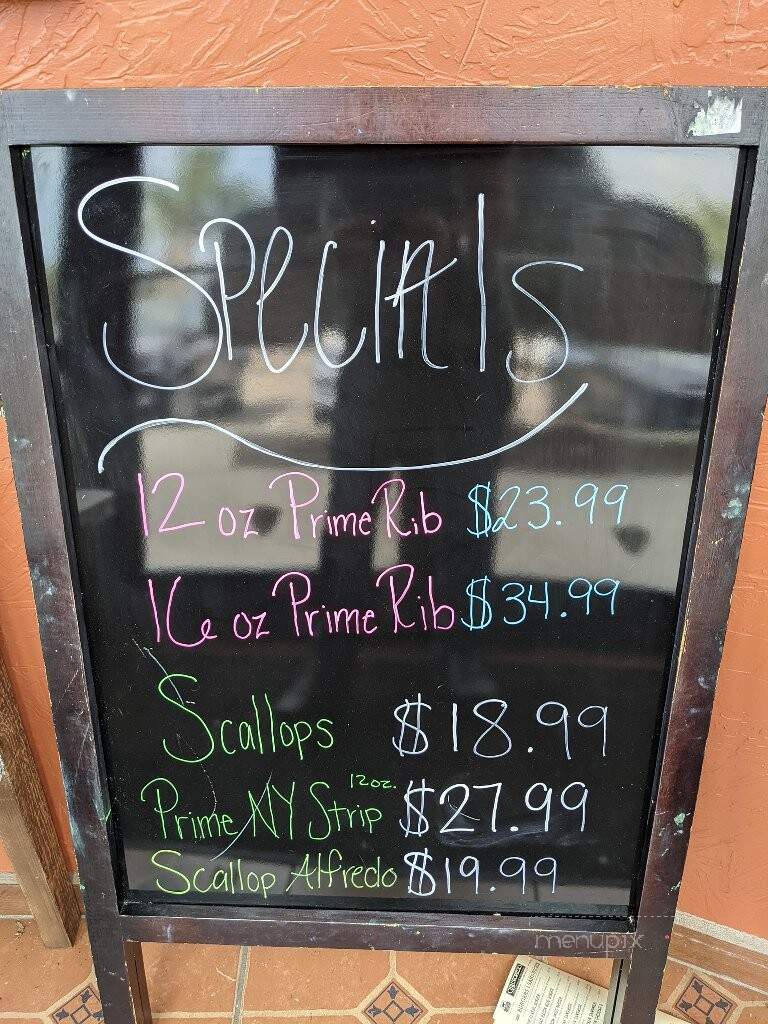 Specials
12 oz Prime Rib $23.99
16 oz Prime Rib $34.99
Scallops $18.99
Prime NY Strip 12oz. $27.99
Scallop Alfredo $19.99
menupix